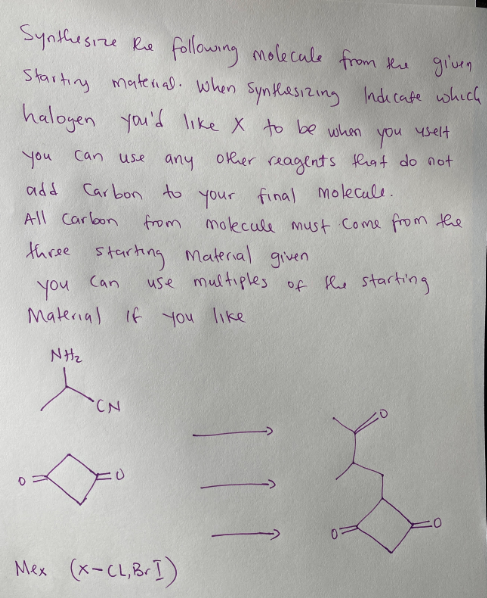 Synthesize the following molecule from the given
starting material. When synthesizing Indicate which
halogen you'd like X to be when you
you can use any other reagents that do not
add Carbon to your final molecule.
All Carbon from molecule must come from the
three starting Material given
you can use multiples of the starting
Material if you like
NH2
CN
O
O
O
O
O
Mex (X-CL, Br I)